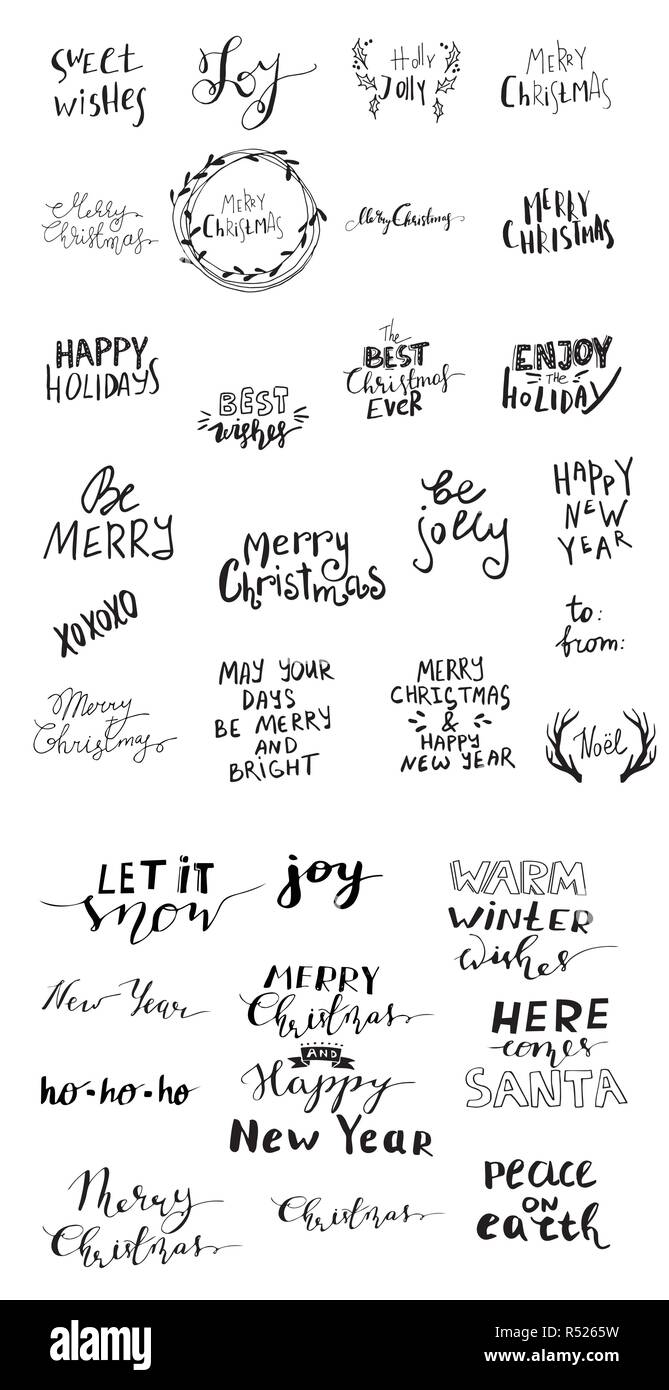 Sweet
wishes
Joy
Holly
Jolly
Merry
Christmas
Merry
Christmas
Merry
Christmas
Merry Christmas
Merry
Christmas
HAPPY
HOLIDAYS
BEST
wishes
The
BEST
Christmas
EVER
ENJOY
THE
HOLIDAY
Be
MERRY
Merry
Christmas
be
jolly
HAPPY
NEW
YEAR
XOXOXO
to:
from:
Merry
Christmas
MAY YOUR
DAYS
BE MERRY
AND
BRIGHT
MERRY
CHRISTMAS
&
HAPPY
NEW YEAR
Noël
LET iT
snow
joy
WARM
WiNTER
wishes
New Year
MERRY
Christmas
AND
Happy
New Year
HERE
comes
SANTA
ho-ho-ho
Merry
Christmas
Christmas
peace
ON
earth
alamy
Image ID: R5265W
www.alamy.com